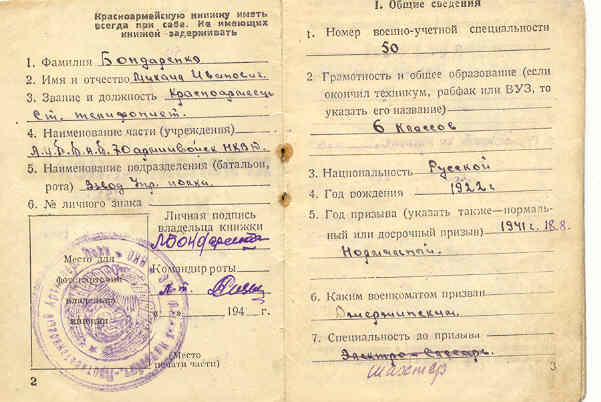 Красноармейскую книжку иметь
всегда при себе. Не имеющих
книжек задерживать
1. Фамилия Бондаренко
2. Имя и отчество Михаил Иванович
3. Звание и должность Красноармеец
Ст. телефонист.
4. Наименование части (учреждения)
70 армии войск НКВД
5. Наименование подразделения (батальон,
рота) Взвод Упр. полка
6. № личного знака
Личная подпись
владельца книжки
Бондаренко
Место для
фотокарточки
владельца
книжки
Командир роты
л-т.
" " 194 г.
(Место
печати части)
2
I. Общие сведения
1. Номер военно-учетной специальности
50
2 Грамотность и общее образование (если
окончил техникум, рабфак или ВУЗ, то
указать его название)
6 классов
3. Национальность Русской
4. Год рождения 1922 г
5. Год призыва (указать также—нормаль-
ный или досрочный призыв) 1941 г. 18.8.
Нормальный.
6. Каким военкоматом призван
7. Специальность до призыва
Электро-слесарь.
шахтер
3